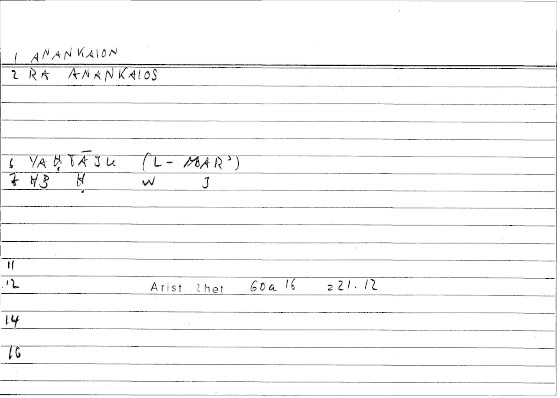 1 ANANKAION
2 RA ANANKAIOS
6 YAḤTĀJU (L-MAR')
7 HB Ḥ W J
11
12 Arist Rhet 60a16 221.12
14
16